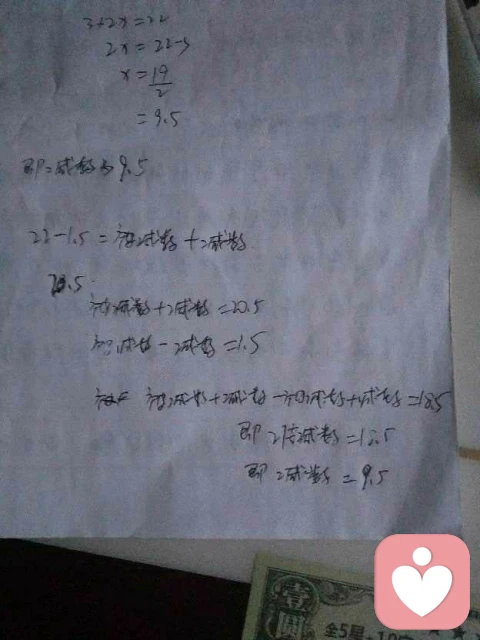 3+2x=22
2x=22-3
x=19/2
=9.5
即减数为9.5
22-1.5=被减数+减数
20.5
被减数+减数=20.5
被减数-减数=1.5
被减数+减数-被减数+减数=18.5
即2倍减数=18.5
即减数=9.5
壹
全5星